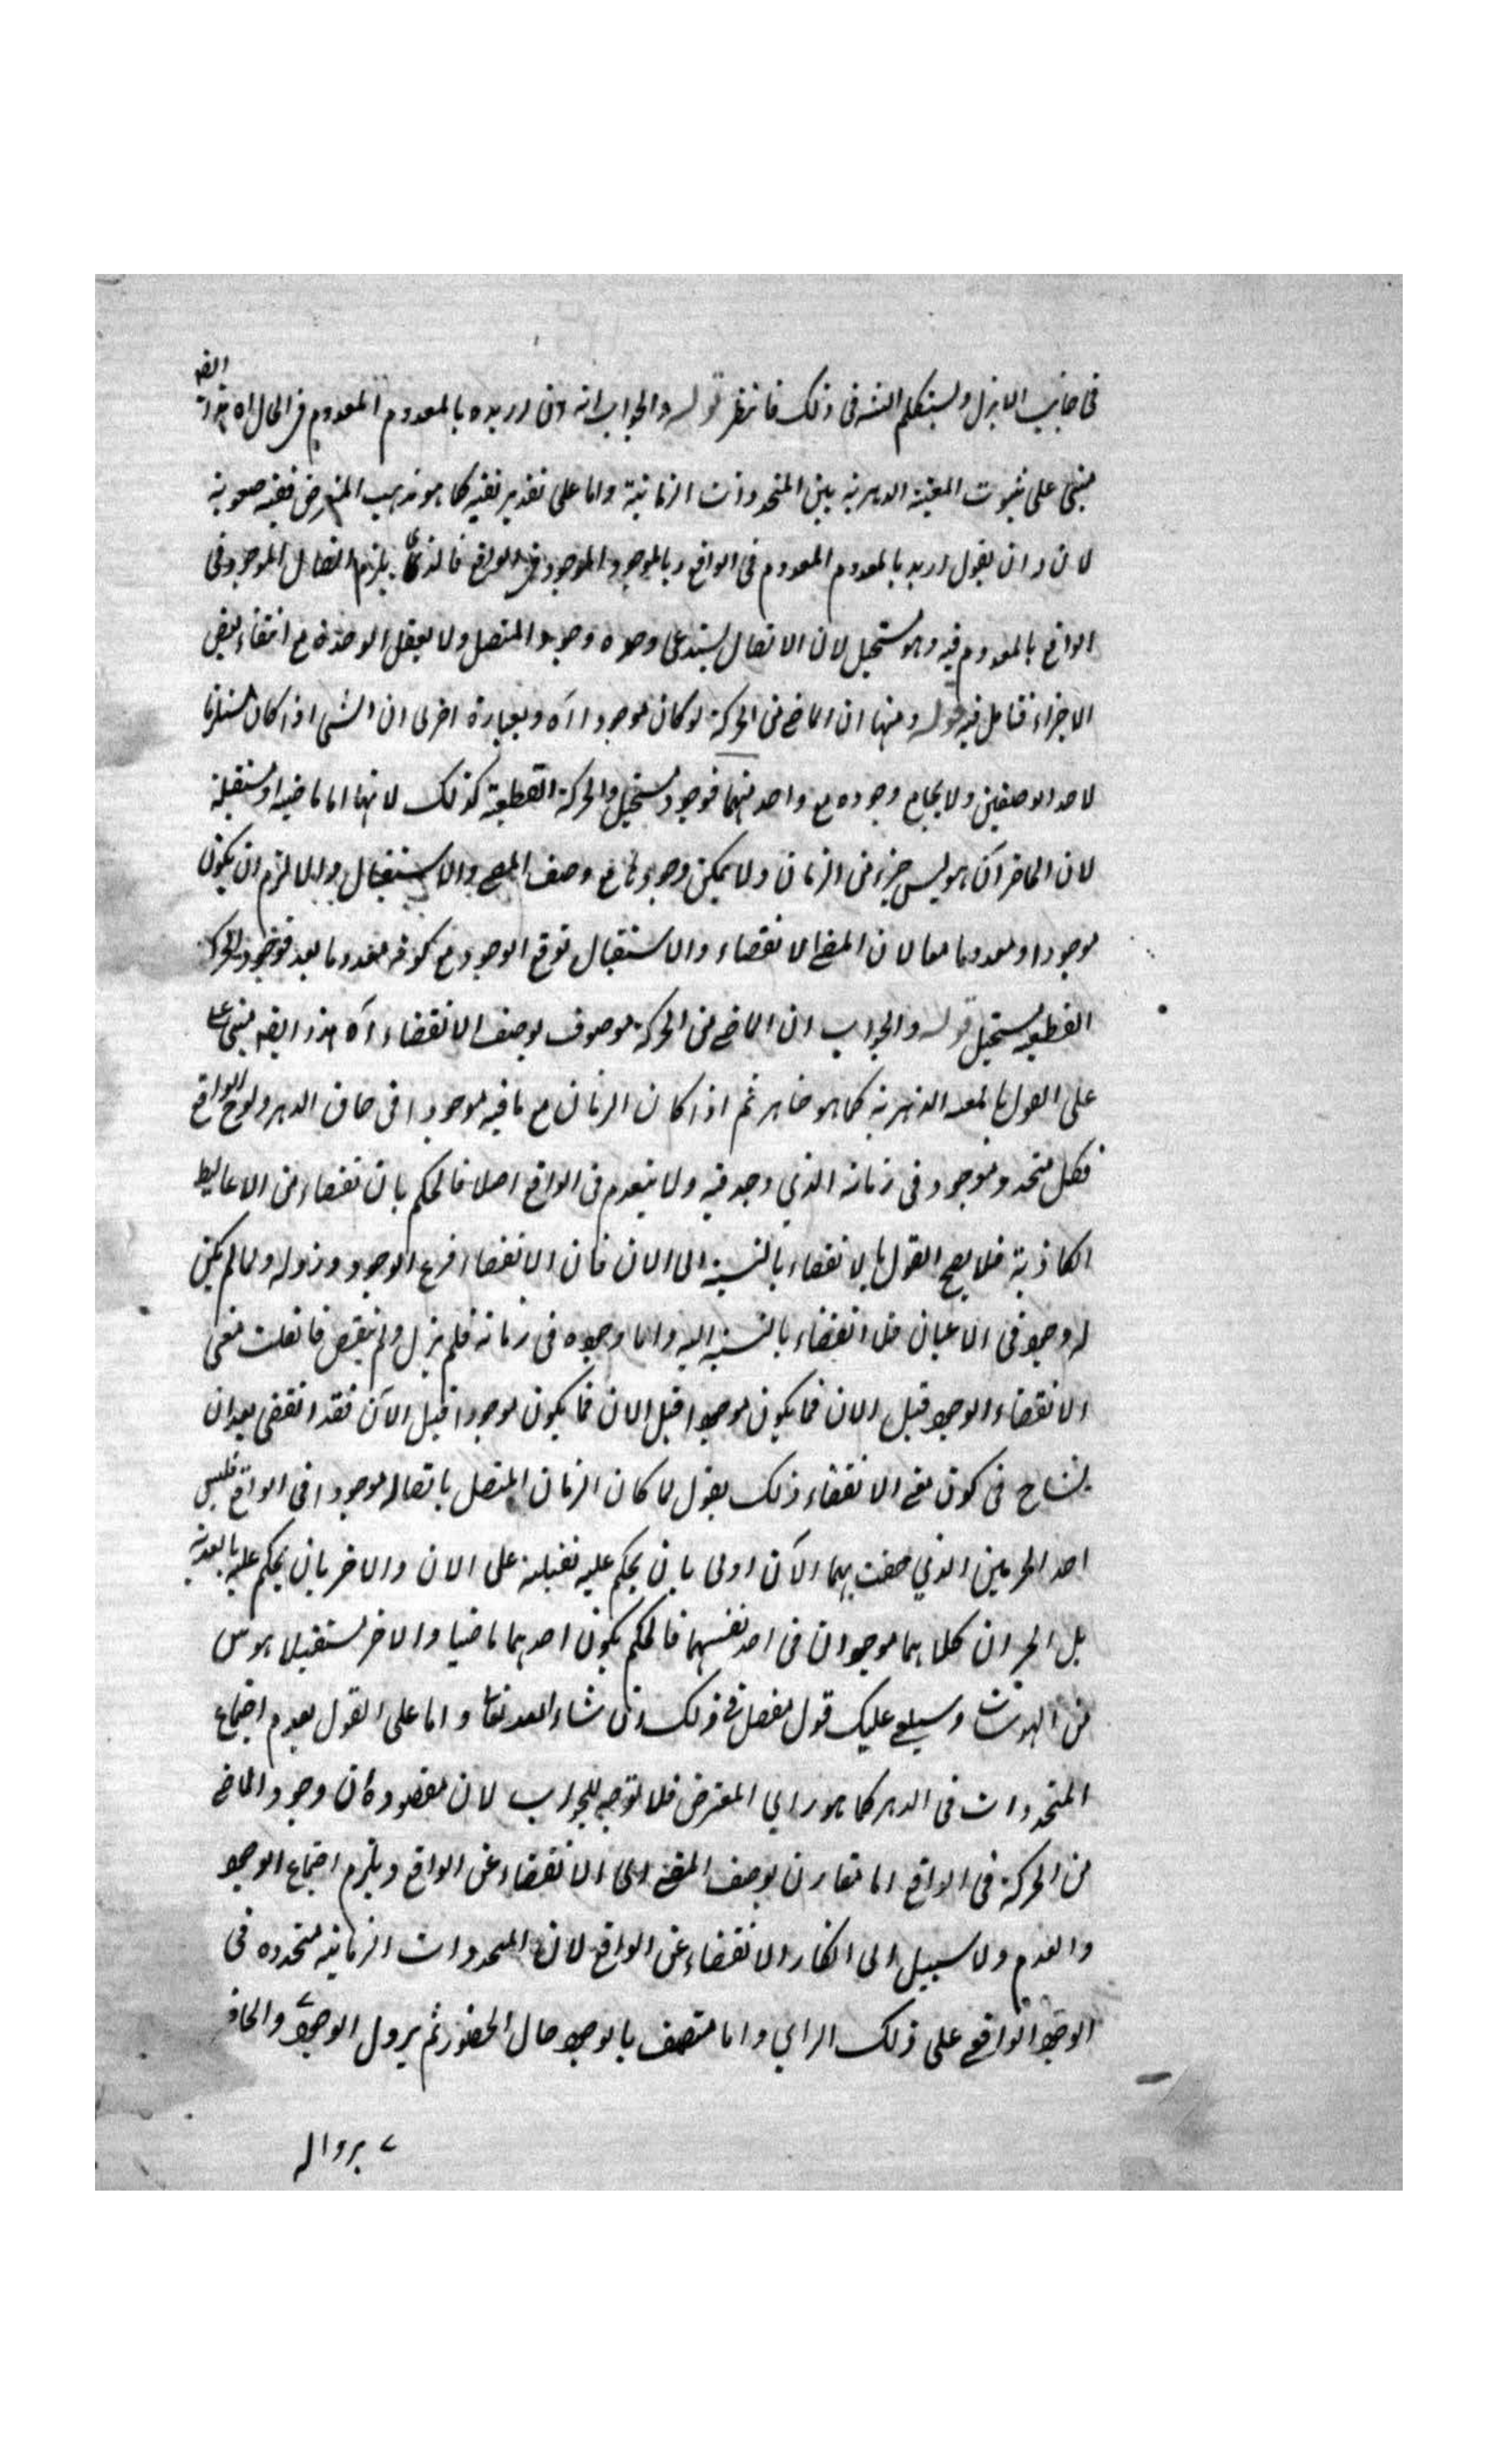 في جانب الازل وسيتكلم الشه في ذلك فانتظر قوله والجواب انه ان اريد بالمعدوم المعدوم في الحال اه هذا ايضه
مبني على ثبوت المعية الدهرية بين المتجددات الزمانية واما على تقدير نفيه كما هو مذهب المعترض ففيه صعوبة
لان له ان يقول اريد بالمعدوم المعدوم في الواقع وبالموجود الموجود في الواقع يلزم اتصال الموجود في
الواقع بالمعدوم فيه وهو مستحيل لان الاتصال يستدعي وحدة وجود المتصل ولا يعقل الوحدة مع انتفاء بعض
الاجزاء فتامل فيه قوله ومنها ان الماضي من الحركة لو كان موجودا آه وبعبارة اخرى ان الشي اذا كان مستلزما
لاحد الوصفين ولا يجامع وجوده مع واحد منهما فوجوده مستحيل والحركة القطعية كذلك لانها اما ماضية او مستقبلة
لان الحاضر آن هو ليس جزء من الزمان ولا يمكن وجودها مع وصف المضي والاستقبال والا لزم ان يكون
موجودا ومعدوما معا لان المضي الانقضاء والاستقبال توقع الوجود مع كونه معدوما بعد فوجود الحركة
القطعية مستحيل قوله والجواب ان الماضي من الحركة موصوف بوصف الانقضاء آه هذا ايضه مبني على
على القول بالمعية الدهرية كما هو ظاهر ثم اذا كان الزمان مع ما فيه موجودا في حاق الدهر ولوح الواقع
فكل متجدد موجود في زمانه الذي وجد فيه ولا ينعدم في الواقع اصلا فالحكم بان نقضاء من الاغاليط
الكاذبة فلا يصح القول بالانقضاء بالنسبة الى الان فان الانقضاء فرع الوجود وزواله ولما لم يكن
له وجود في الاعيان فلا انقضاء بالنسبة اليه واما وجوده في زمانه فلم يزل ولم ينقض فان قلت معنى
الانقضاء الوجود قبل الان فما يكون موجودا قبل الان فما يكون موجودا قبل الآن فقد انقضى بعد ان
يتسامح في كون معنى الانقضاء ذلك يقول لما كان الزمان المتصل باتصاله موجودا في الواقع فليس
احد الجزئين الذي حفت بهما الآن اولى بان يحكم عليه بقبلية على الان والاخر بان يحكم عليه بالبعدية
بل الجزءان كلاهما موجودان في احد نفسهما فالحكم بكون احدهما ماضيا والاخر مستقبلا هوس
من الهوسات وسيتلى عليك قول مفصل في ذلك ان شاء الله تعالى واما على القول بعدم اجتماع
المتجددات في الدهر كما هو راي المعترض فلا توجه للجواب لان مقصوده ان وجود الماضي
من الحركة في الواقع اما مقارن بوصف المضي الانقضاء عن الواقع ويلزم اجتماع الوجود
والعدم ولا سبيل الى انكار الانقضاء عن الواقع لان المتجددات الزمانية متجددة في
الوجود الواقعي على ذلك الراي واما متصف بالوجود حال الحضور ثم يزول الوجود
بزواله